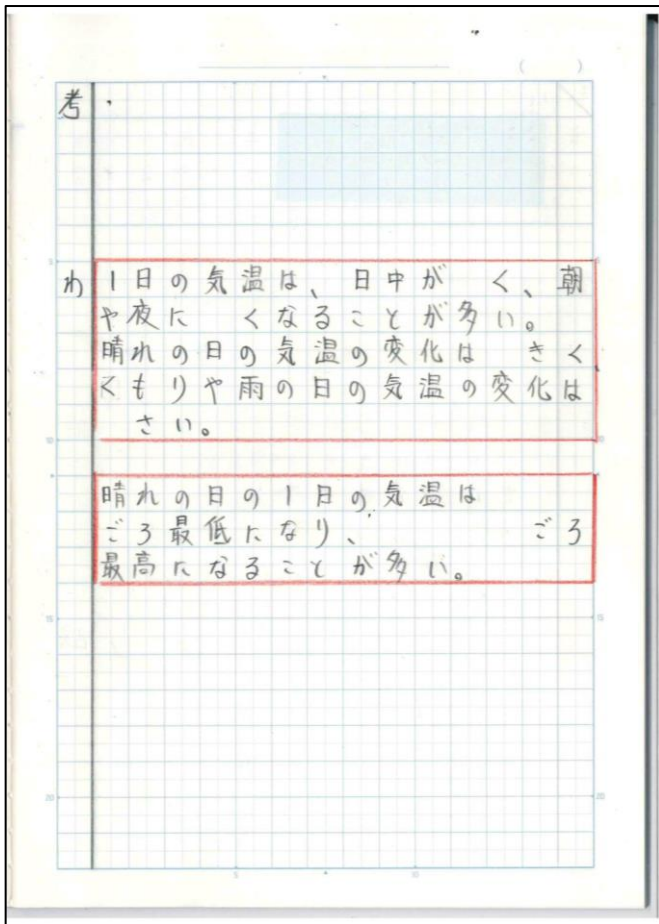 考・
わ 1日の気温は、日中が　く、朝
や夜に　くなることが多い。
晴れの日の気温の変化は　きく
くもりや雨の日の気温の変化は
　さい。
晴れの日の1日の気温は
ごろ最低になり、　　　　ごろ
最高になることが多い。